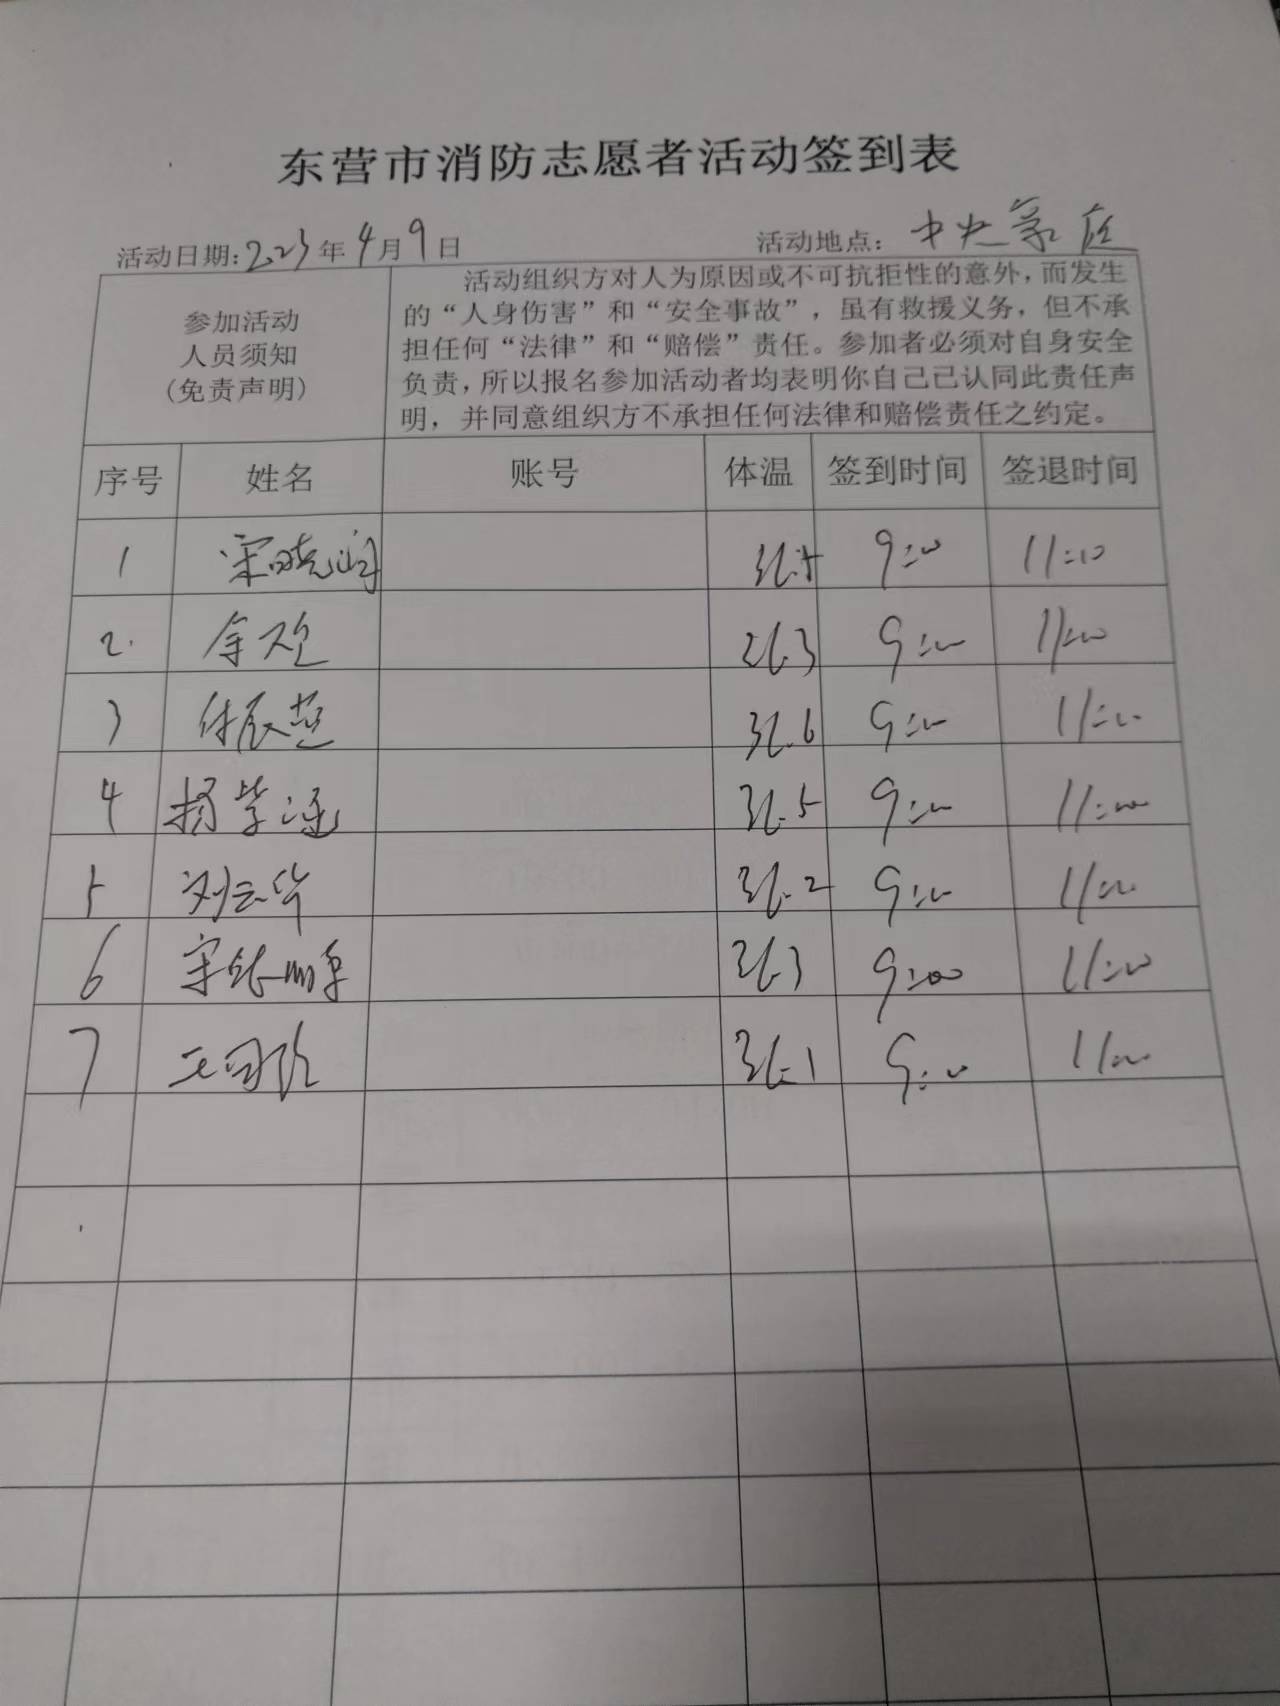 东营市消防志愿者活动签到表
活动日期:2023年4月9日 活动地点: 中央豪庭
参加活动
人员须知
(免责声明)
活动组织方对人为原因或不可抗拒性的意外，而发生
的“人身伤害”和“安全事故”，虽有救援义务，但不承
担任何“法律”和“赔偿”责任。参加者必须对自身安全
负责，所以报名参加活动者均表明你自己已认同此责任声
明，并同意组织方不承担任何法律和赔偿责任之约定。
序号 姓名 账号 体温 签到时间 签退时间
1 宋晓 36.5 9:00 11:00
2. 36.3 9:00 11:00
3 36.6 9:00 11:00
4 杨紫涵 36.5 9:00 11:00
5 刘云华 36.2 9:00 11:00
6 宋 36.3 9:00 11:00
7 王 36.1 9:00 11:00